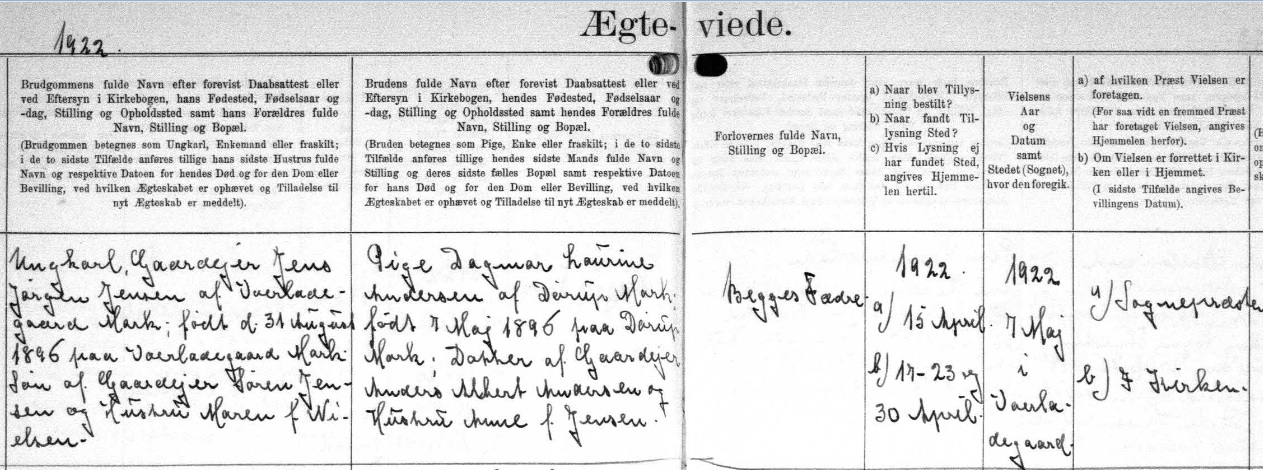 Ægte- viede.
1922.
Brudgommens fulde Navn efter forevist Daabsattest eller
ved Eftersyn i Kirkebogen, hans Fødested, Fødselsaar og
-dag, Stilling og Opholdssted samt hans Forældres fulde
Navn, Stilling og Bopæl.
(Brudgommen betegnes som Ungkarl, Enkemand eller fraskilt;
i de to sidste Tilfælde anføres tillige hans sidste Hustrus fulde
Navn og respektive Datoen for hendes Død og for den Dom eller
Bevilling, ved hvilken Ægteskabet er ophævet og Tilladelse til
nyt Ægteskab er meddelt).
Brudens fulde Navn efter forevist Daabsattest eller ved
Eftersyn i Kirkebogen, hendes Fødested, Fødselsaar og
-dag, Stilling og Opholdssted samt hendes Forældres fulde
Navn, Stilling og Bopæl.
(Bruden betegnes som Pige, Enke eller fraskilt; i de to sidste
Tilfælde anføres tillige hendes sidste Mands fulde Navn og
Stilling og deres sidste fælles Bopæl samt respektive Datoen
for hans Død og for den Dom eller Bevilling, ved hvilken
Ægteskabet er ophævet og Tilladelse til nyt Ægteskab er meddelt).
Forlovernes fulde Navn,
Stilling og Bopæl.
a) Naar blev Tillys-
ning bestilt?
b) Naar fandt Til-
lysning Sted?
c) Hvis Lysning ej
har fundet Sted,
angives Hjemme-
len hertil.
Vielsens
Aar
og
Datum
samt
Stedet (Sognet),
hvor den foregik.
a) af hvilken Præst Vielsen er
foretagen.
(For saa vidt en fremmed Præst
har foretaget Vielsen, angives
Hjemmelen herfor).
b) Om Vielsen er forrettet i Kir-
ken eller i Hjemmet.
(I sidste Tilfælde angives Be-
villingens Datum).
Ungkarl, Gaardejer Jens
Jørgen Jensen af Vaerlade-
gaard Mark; født d. 31 August
1896 paa Vaerladegaard Mark
Søn af Gaardejer Søren Jen-
sen og Hustru Maren f Ni-
elsen.
Pige Dagmar Laurine
Andersen af Dørup Mark,
født 7 Maj 1896 paa Dørup
Mark; Datter af Gaardejer
Anders Albert Andersen og
Hustru Anne f. Jensen.
Begges Fædre
1922.
a) 15 April.
b) 17-23 og
30 April.
1922
7 Maj
i
Vaerla-
degaard.
a) Sognepræsten
b) I Kirken.